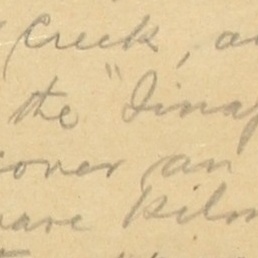 Creek, a
the "Jina
cover an
uare kilo